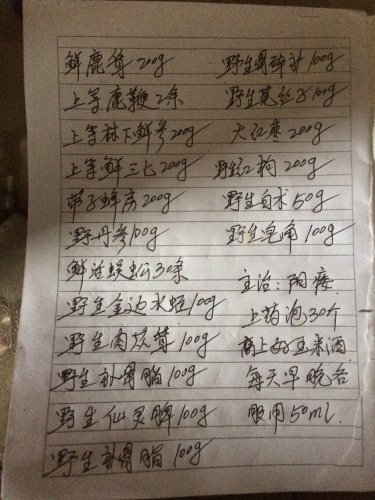 鲜鹿茸200g
上等鹿鞭2条
上等林下鲜参200g
上等鲜三七200g
带子蜂房200g
野丹参100g
鲜活蜈蚣30条
野生金边水蛭100g
野生肉苁蓉100g
野生补骨脂100g
野生仙灵脾100g
野生补骨脂100g
野生骨碎补100g
野生菟丝子100g
大红枣200g
野红枸200g
野生白术50g
野生皂角100g
主治:阳痿
上药泡30斤
高上的玉米酒
每天早晚各
服用50mL.